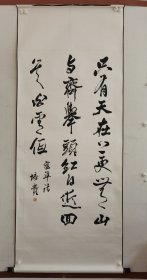 只有天在上更无山
与齐举头红日近回
首白云低
寇准诗